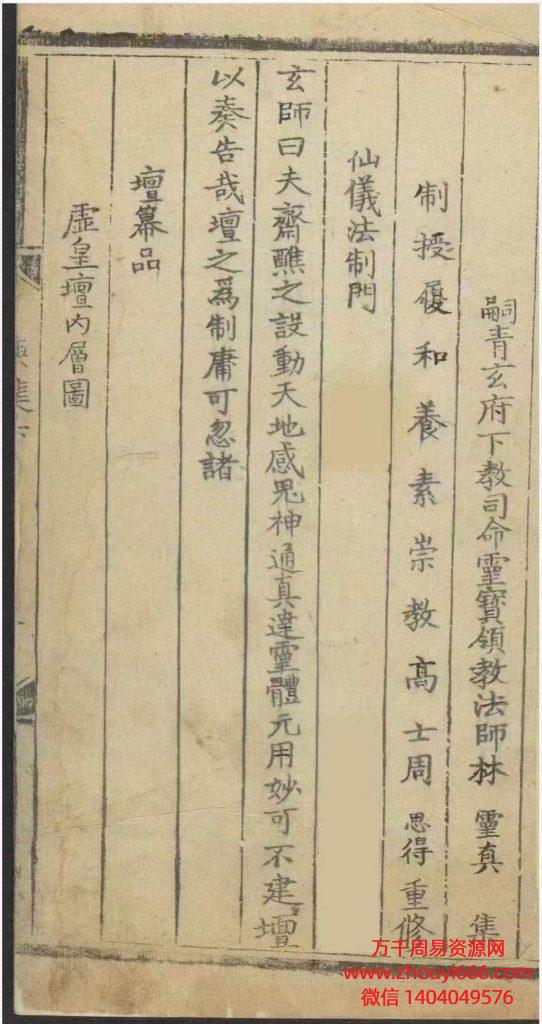 嗣青玄府下教司命靈寶領教法師林靈真集
制授履和養素崇教高士周思得重修
仙儀法制門
玄師曰夫齋醮之設動天地感鬼神通真達靈體元用妙可不建壇
以奏告哉壇之爲制庸可忽諸
壇幕品
虛皇壇內層圖
方千周易资源网
www.zhouyi666.com
微信 1404049576